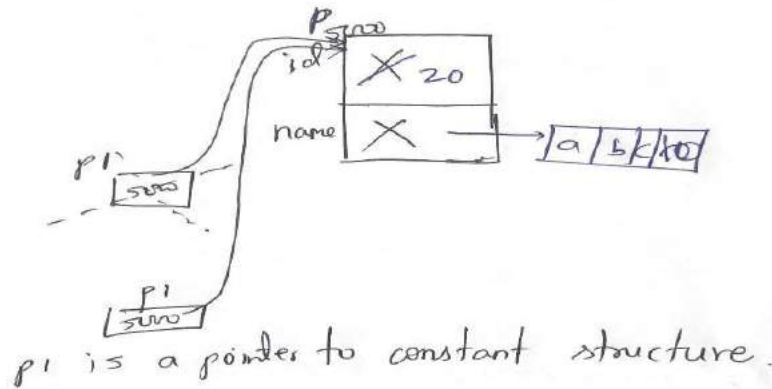 p
5000
id
20
name
a b c \0
p1
5000
p1
5000
p1 is a pointer to constant structure.